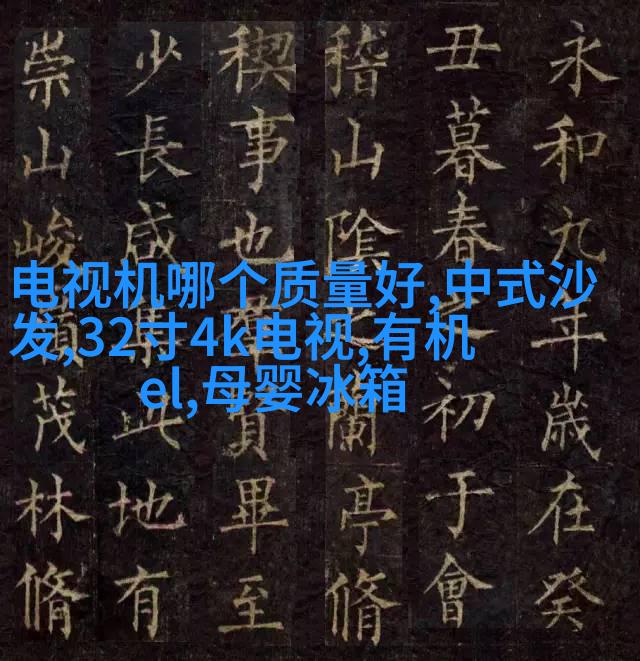 永和九年歲在癸
丑暮春之初于會
稽山陰之蘭亭脩
稧事也羣賢畢至
少長咸集此地有
崇山峻領茂林脩
电视机哪个质量好,中式沙
发,32寸4k电视,有机
el,母婴冰箱